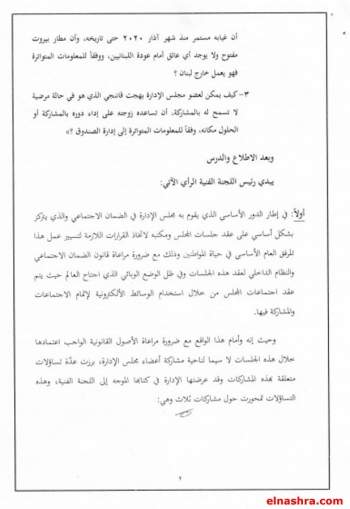 أن غيابه مستمر منذ شهر آذار ٢٠٢٠ حتى تاريخه، وأن مطار بيروت
مفتوح ولا يوجد أي عائق أمام عودة اللبنانيين، ووفقاً للمعلومات المتواترة
فهو يعمل خارج لبنان ؟
٣- كيف يمكن لعضو مجلس الإدارة بهجت قانجي الذي هو في حالة مرضية
لا تسمح له بالمشاركة، أن تساعده زوجته على إداء دوره بالمشاركة أو
الحلول مكانه، وفقاً للمعلومات المتواترة إلى إدارة الصندوق ؟»
وبعد الاطلاع والدرس
يبدي رئيس اللجنة الفنية الرأي الآتي:
أولاً: في إطار الدور الأساسي الذي يقوم به مجلس الإدارة في الضمان الاجتماعي والذي يتركز
بشكل أساسي على عقد جلسات المجلس ومكتبه لاتخاذ القرارات اللازمة لتسيير عمل هذا
المرفق العام الأساسي في حياة المواطنين وذلك مع ضرورة مراعاة قانون الضمان الاجتماعي
والنظام الداخلي لعقد هذه الجلسات وفي ظل الوضع الوبائي الذي اجتاح العالم حيث يتم
عقد اجتماعات المجلس من خلال استخدام الوسائط الألكترونية لإتمام الاجتماعات
والمشاركة فيها.
وحيث إنه وأمام هذا الواقع مع ضرورة مراعاة الأصول القانونية الواجب اعتمادها
خلال هذه الجلسات لا سيما لناحية مشاركة أعضاء مجلس الإدارة، برزت عدّة تساؤلات
متعلقة بهذه المشاركات وقد عرضتها الإدارة في كتابها الموجه إلى اللجنة الفنية، وهذه
التساؤلات تمحورت حول مشاركات ثلاث وهي:
٢
elnashra.com